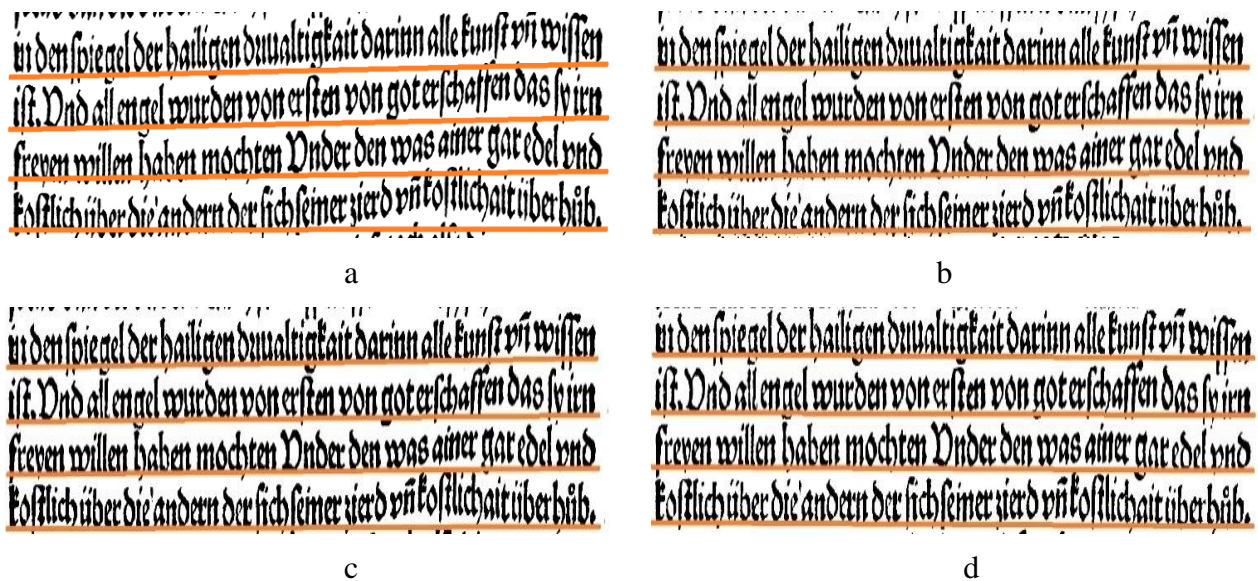 in den ſpiegel der hailigen driualtigkait darinn alle kunſt vn̄ wiſſen
iſt. Vnd all engel wurden von erſten von got erſchaffen das ſy irn
freyen willen haben mochten Vnder den was ainer gar edel vnd
koſtlich über die andern der ſich ſeiner zierd vn̄ koſtlichait überhůb.
a
in den ſpiegel der hailigen driualtigkait darinn alle kunſt vn̄ wiſſen
iſt. Vnd all engel wurden von erſten von got erſchaffen das ſy irn
freyen willen haben mochten Vnder den was ainer gar edel vnd
koſtlich über die andern der ſich ſeiner zierd vn̄ koſtlichait überhůb.
b
in den ſpiegel der hailigen driualtigkait darinn alle kunſt vn̄ wiſſen
iſt. Vnd all engel wurden von erſten von got erſchaffen das ſy irn
freyen willen haben mochten Vnder den was ainer gar edel vnd
koſtlich über die andern der ſich ſeiner zierd vn̄ koſtlichait überhůb.
c
in den ſpiegel der hailigen driualtigkait darinn alle kunſt vn̄ wiſſen
iſt. Vnd all engel wurden von erſten von got erſchaffen das ſy irn
freyen willen haben mochten Vnder den was ainer gar edel vnd
koſtlich über die andern der ſich ſeiner zierd vn̄ koſtlichait überhůb.
d